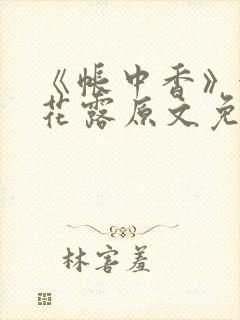 《帐中香》
花露原文免
林害羞